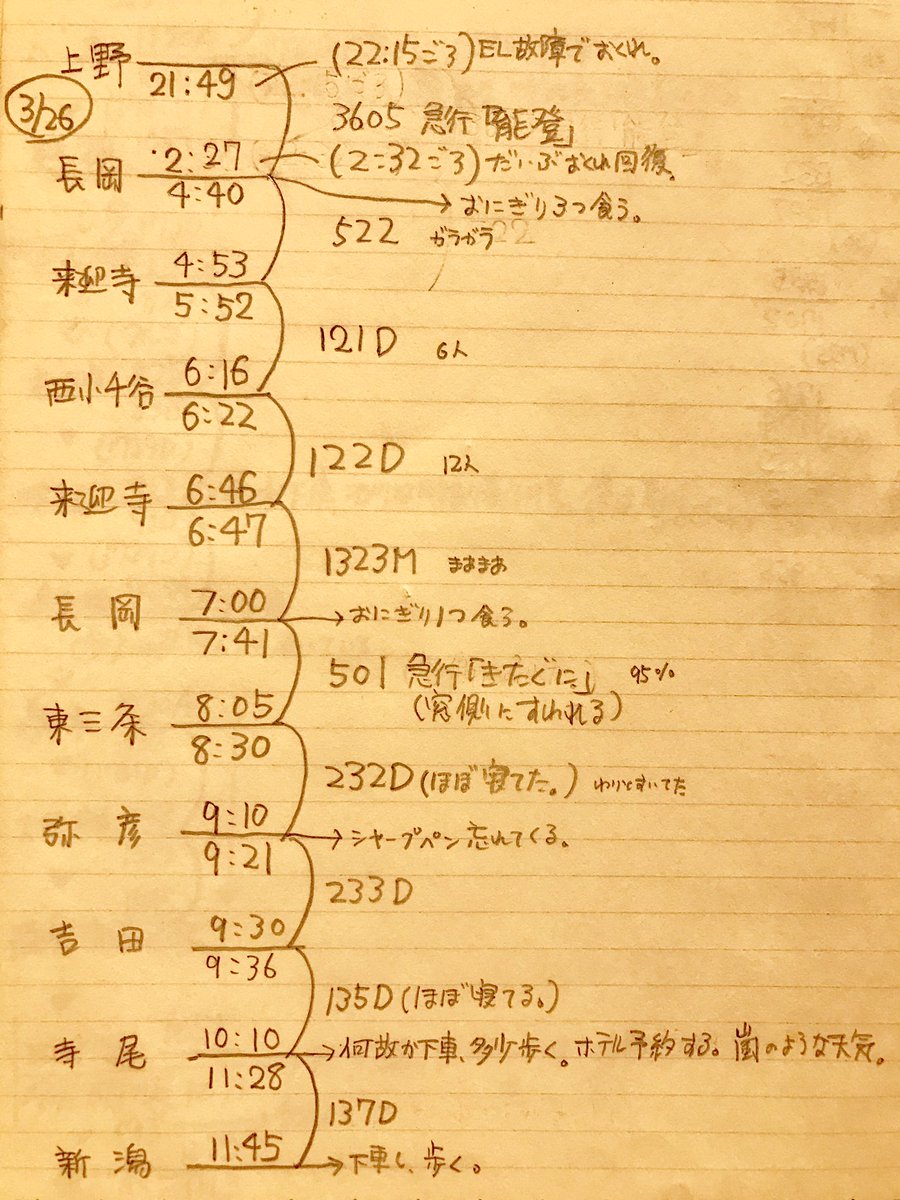 上野 21:49 (22:15ごろ) EL故障でおくれ。
3/26
3605 急行「能登」
長岡 2:27 (2:32ごろ) だいぶおくれ回復。
4:40 →おにぎり3つ食う。
522 ガラガラ
来迎寺 4:53
5:52
121D 6人
西小千谷 6:16
6:22
122D 12人
来迎寺 6:46
6:47
1323M まあまあ
長岡 7:00 →おにぎり1つ食う。
7:41
501 急行「きたぐに」 95%
(窓側にすわれる)
東三条 8:05
8:30
232D (ほぼ寝てた。) わりとすいてた
弥彦 9:10 →シャープペン忘れてくる。
9:21
233D
吉田 9:30
9:36
135D (ほぼ寝てる。)
寺尾 10:10 →何故か下車、多少歩く。ホテル予約する。嵐のような天気。
11:28
137D
新潟 11:45 →下車し、歩く。